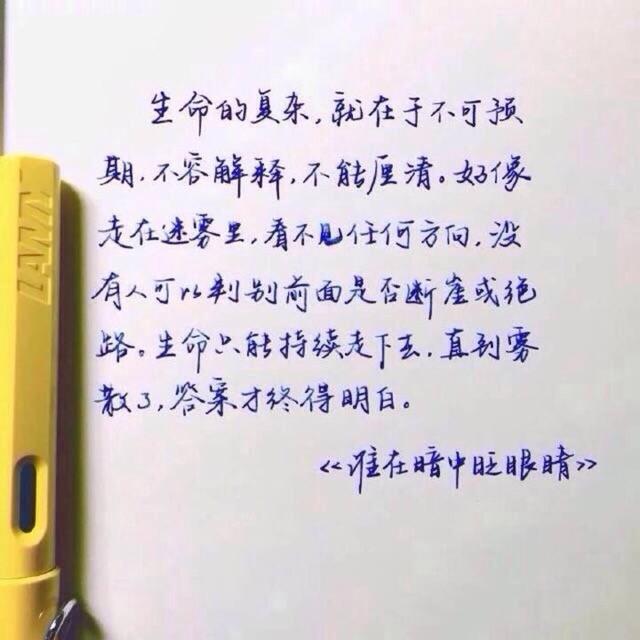 LAMY
生命的复杂,就在于不可预
期,不容解释,不能厘清。好像
走在迷雾里,看不见任何方向,没
有人可以判别前面是否断崖或绝
路。生命只能持续走下去,直到雾
散了,答案才终得明白。
<<谁在暗中眨眼睛>>